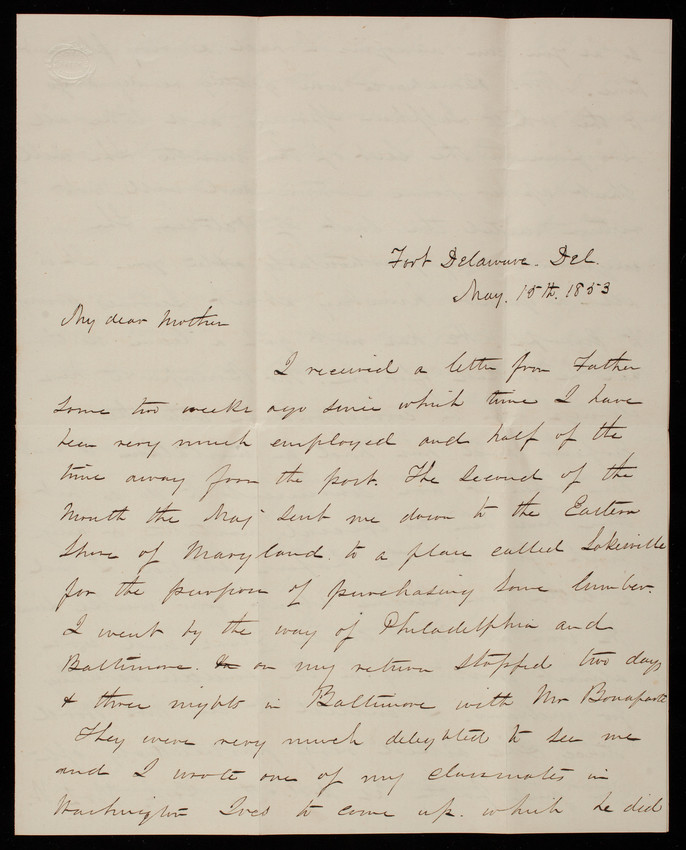 Fort Delaware. Del.
May. 15th. 1853
My dear Mother
I received a letter from Father
some two weeks ago since which time I have
been very much employed and half of the
time away from the post. The second of the
Month the Maj sent me down to the Eastern
Shore of Maryland. to a place called
for the purpose of purchasing some lumber.
I went by the way of Philadelphia and
Baltimore. on my return stopped two days
& three nights in Baltimore with Mr Bonaparte
They were very much delighted to see me
and I wrote one of my classmates in
Washington Ives to come up. which he did